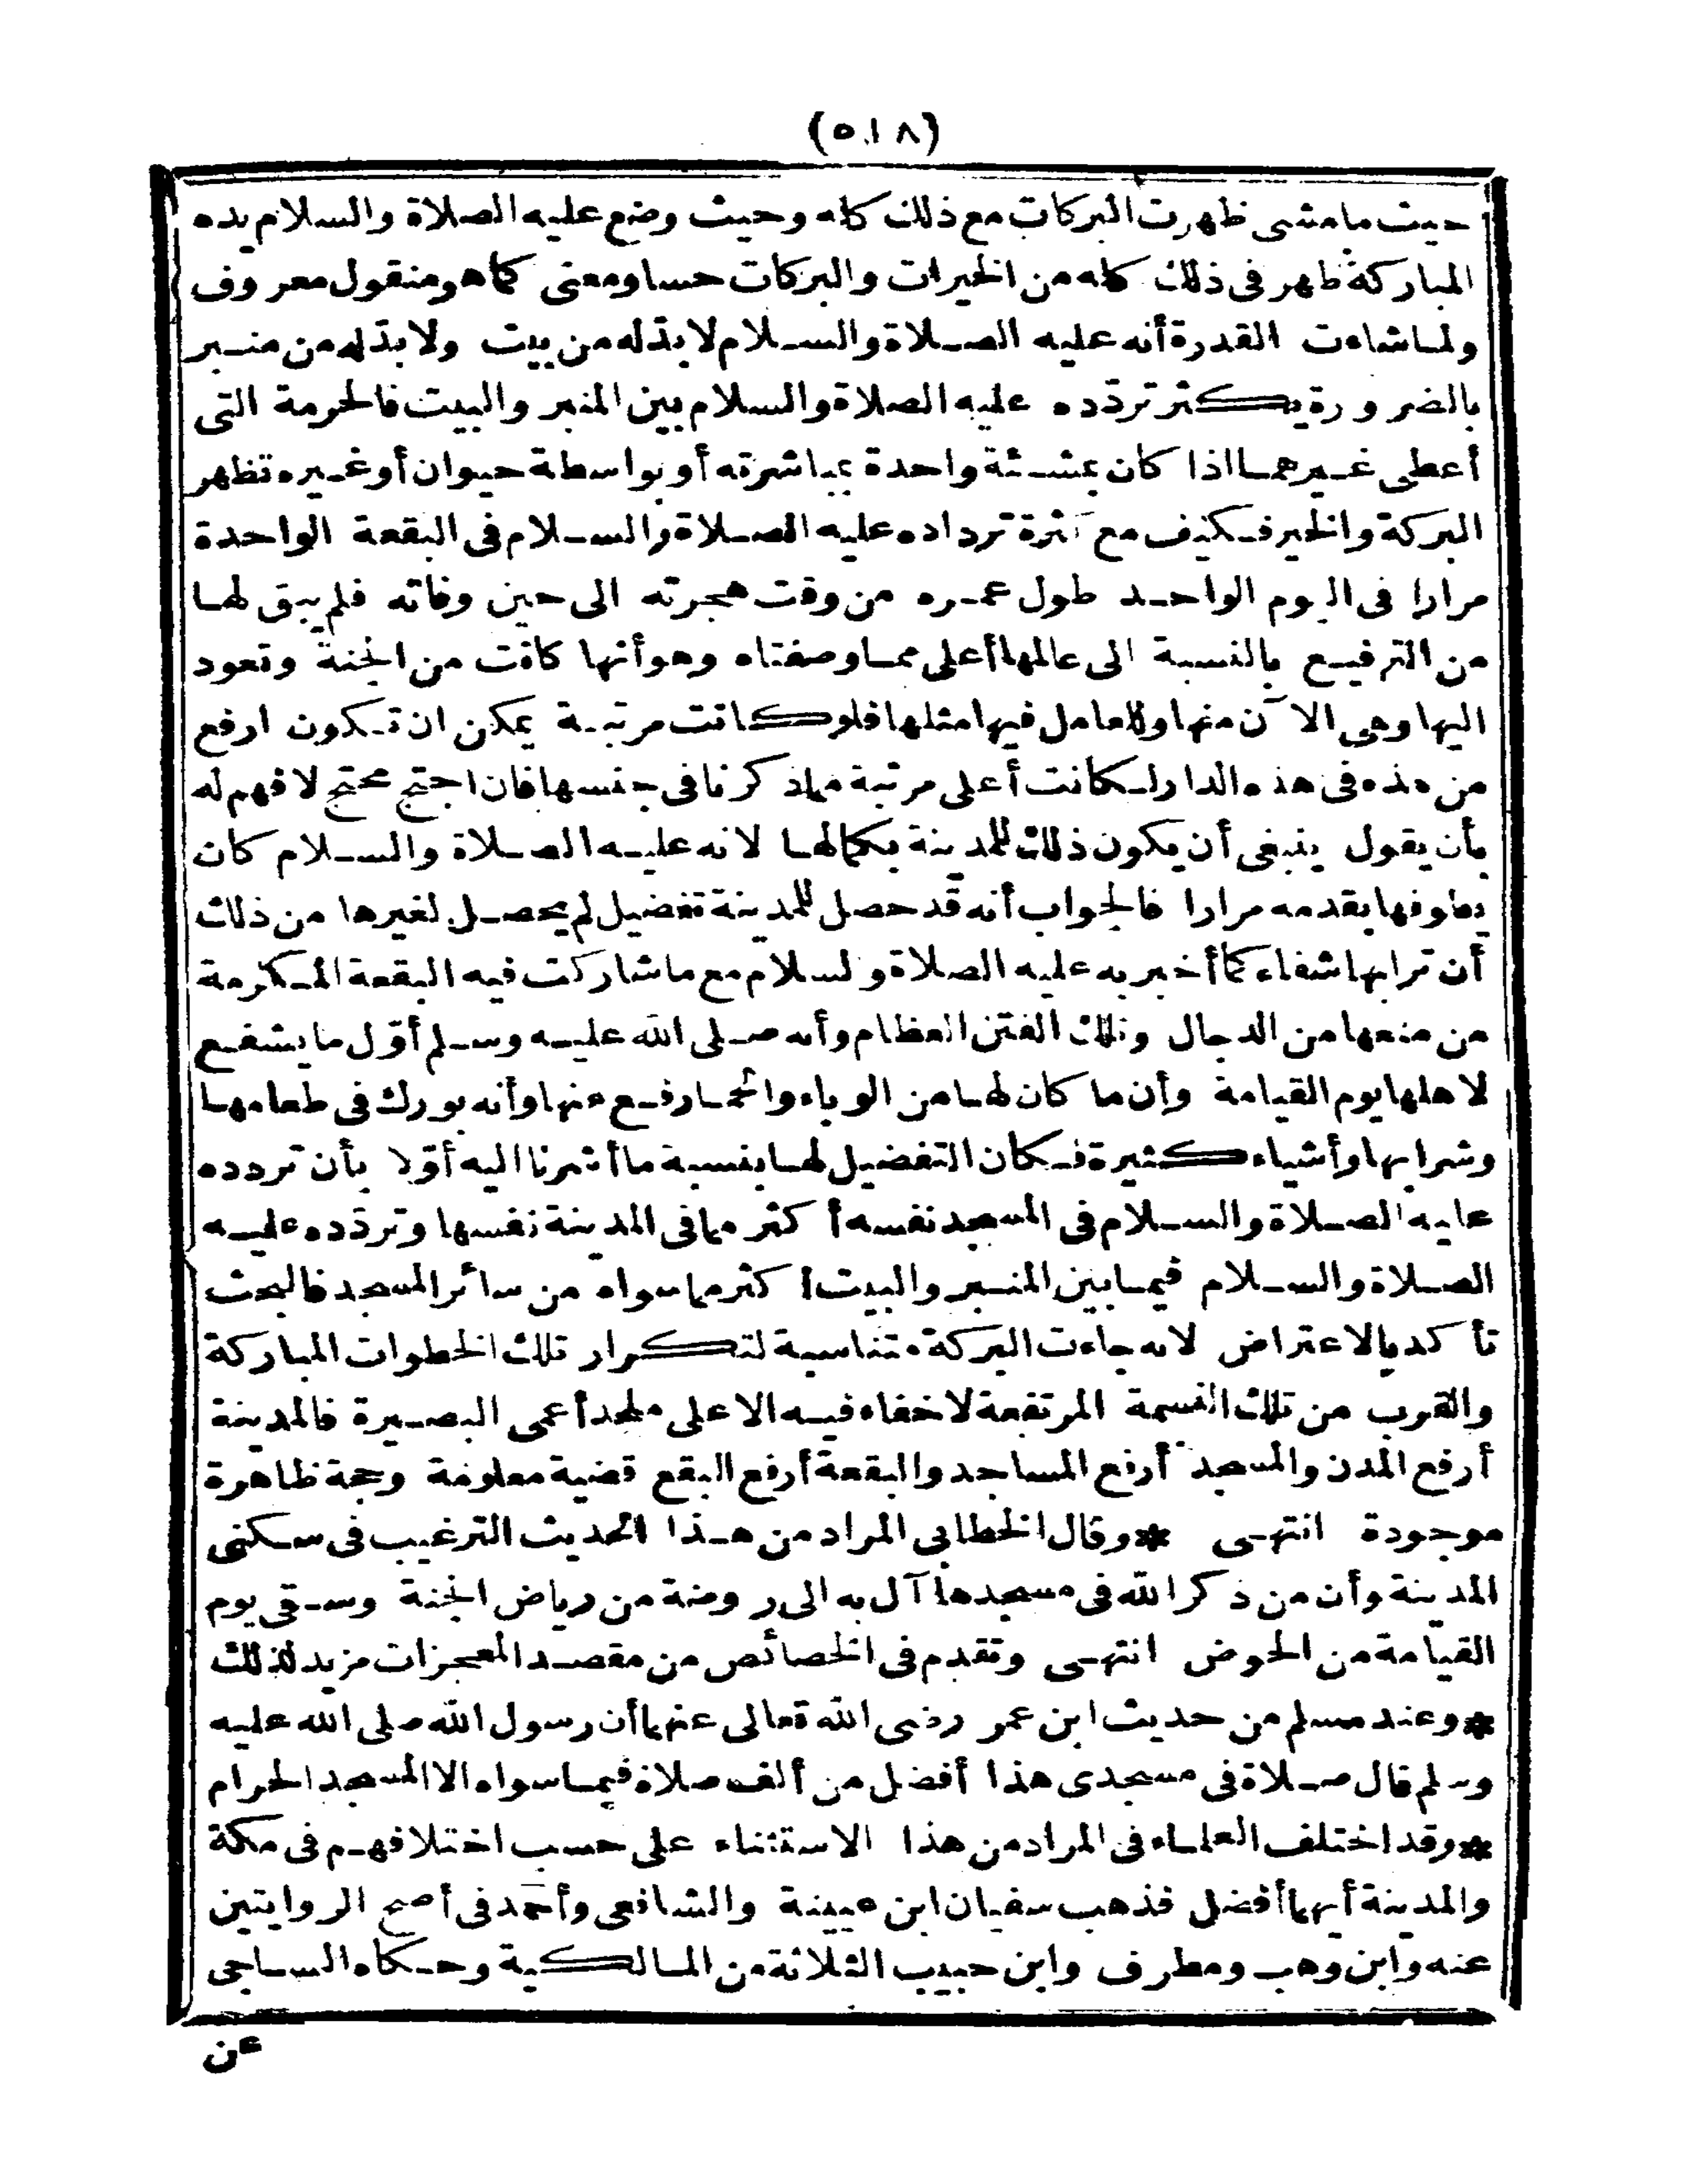 (٥١٨)
حيث ما مشى ظهرت البركات مع ذلك كله وحيث وضع عليه الصلاة والسلام يده
المباركة ظهر فى ذلك كله من الخيرات والبركات حسا ومعنى كما هو منقول معروف
ولما شاءت القدرة أنه عليه الصلاة والسلام لا بدّ له من بيت ولا بدّ له من منبر
بالضرورة يكثر تردّده عليه الصلاة والسلام بين المنبر والبيت فالحرمة التى
أعطى غيرهما اذا كان بمشئة واحدة بمباشرته أو بواسطة حيوان أو غيره تظهر
البركة والخير فكيف مع كثرة ترداده عليه الصلاة والسلام فى البقعة الواحدة
مرارا فى اليوم الواحد طول عمره من وقت هجرته الى حين وفاته فلم يبق لها
من الترفيع بالنسبة الى عالمها أعلى مما وصفناه وهو أنها كانت من الجنة وتعود
اليها وهى الآن منها وللعامل فيها مثلها فلو كانت مرتبة يمكن ان تكون ارفع
من هذه فى هذه الدار لكانت أعلى مرتبة مما ذكرنا فى جنسها فان احتج محتج لا فهم له
بأن يقول ينبغى أن يكون ذلك للمدينة بكمالها لانه عليه الصلاة والسلام كان
يطوفها بقدمه مرارا فالجواب أنه قد حصل للمدينة تفضيل لم يحصل لغيرها من ذلك
أن ترابها شفاء كما أخبر به عليه الصلاة والسلام مع ما شاركت فيه البقعة المكرمة
من منعها من الدجال وتلك الفتن العظام وأنه صلى الله عليه وسلم أوّل ما يشفع
لاهلها يوم القيامة وأن ما كان لها من الوباء والحمار فع عنها وأنه بورك فى طعامها
وشرابها وأشياء كثيرة فكان التفضيل لها بنسبة ما أشرنا اليه أوّلا بأن تردده
عليه الصلاة والسلام فى المسجد نفسه أكثر مما فى المدينة نفسها وتردّده عليه
الصلاة والسلام فيما بين المنبر والبيت أكثر مما سواه من سائر المسجد فالبحث
تأكد بالاعتراض لانه جاءت البركة متناسبة لتكرار تلك الخطوات المباركة
والقرب من تلك النسمة المرتفعة لا خفاء فيه الا على ملحد أعمى البصيرة فالمدينة
أرفع المدن والمسجد أرفع المساجد والبقعة أرفع البقع قضية معلومة وحجة ظاهرة
موجودة انتهى * وقال الخطابى المراد من هذا الحديث الترغيب فى سكنى
المدينة وأن من ذكر الله فى مسجدها آل به الى روضة من رياض الجنة وسقى يوم
القيامة من الحوض انتهى وتقدم فى الخصائص من مقصد المعجزات مزيد لذلك
* وعند مسلم من حديث ابن عمر رضى الله تعالى عنهما أن رسول الله صلى الله عليه
وسلم قال صلاة فى مسجدى هذا أفضل من ألف صلاة فيما سواه الا المسجد الحرام
* وقد اختلف العلماء فى المراد من هذا الاستثناء على حسب اختلافهم فى مكة
والمدينة أيهما أفضل فذهب سفيان ابن عيينة والشافعى وأحمد فى أصح الروايتين
عنه وابن وهب ومطرف وابن حبيب الثلاثة من المالكية وحكاه الساجى
عن